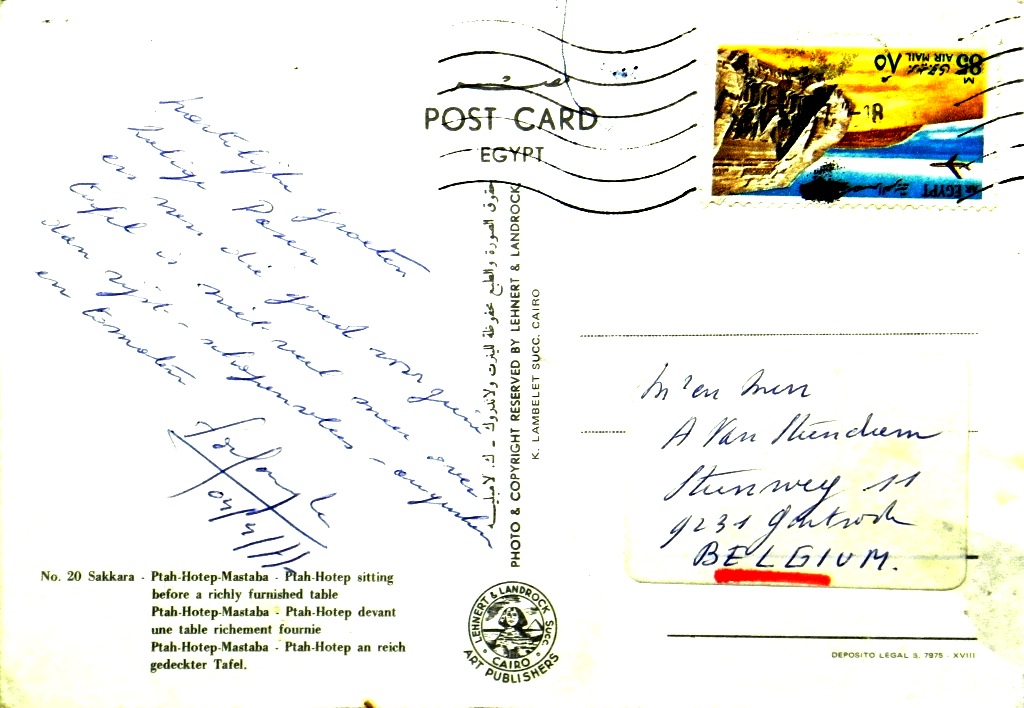 Hartelijke groeten
en van die goed voorziene
Tafel is niet veel meer over
dan rijst - schapenvlees - augurken
en tomaten
04/4/77
No. 20 Sakkara - Ptah-Hotep-Mastaba - Ptah-Hotep sitting
before a richly furnished table
Ptah-Hotep-Mastaba - Ptah-Hotep devant
une table richement fournie
Ptah-Hotep-Mastaba - Ptah-Hotep an reich
gedeckter Tafel.
POST CARD
EGYPT
حقوق الصورة والطبع محفوظة للينرت ولاندروك - ك. لامبليه
PHOTO & COPYRIGHT RESERVED BY LEHNERT & LANDROCK
K. LAMBELET SUCC. CAIRO
LEHNERT & LANDROCK SUCC.
CAIRO
ART PUBLISHERS
85 M ٨٥
AIR MAIL
EGYPT
M 'en Mevr
A Van
Steenweg 11
9231 Gontrode
BELGIUM.
DEPOSITO LEGAL S. 7975 - XVIII